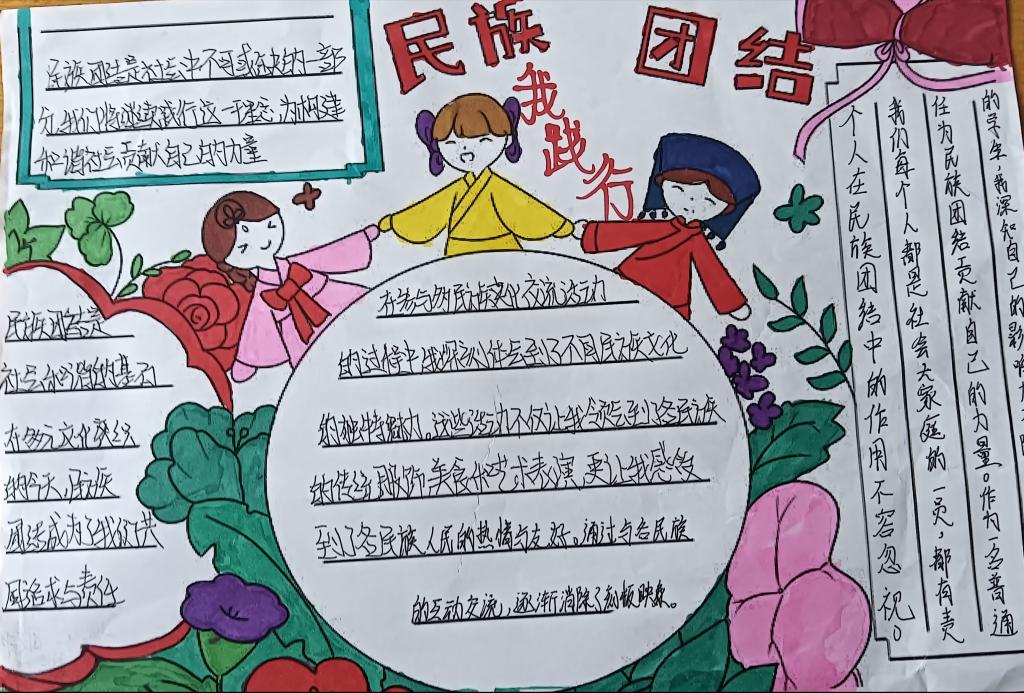 民族团结
我践行
民族团结是社会中不可或缺的一部
分,我们将继续践行这一理念,为构建
和谐社会贡献自己的力量
民族团结是
社会和谐的基石
在多元文化交织
的今天,民族
团结成为了我们共
同追求与责任
在参与多民族文化交流活动
的过程中,我深刻体会到了不同民族文化
的独特魅力。这些活动不仅让我领会到了各民族
的传统服饰,美食和艺术表演,更让我感受
到了各民族人民的热情与友好。通过与各民族
的互动交流,逐渐消除了刻板映象。
个人在民族团结中的作用不容忽视。
我们每个人都是社会大家庭的一员,都有责
任为民族团结贡献自己的力量。作为一名普通
的学生,我深知自己的影响